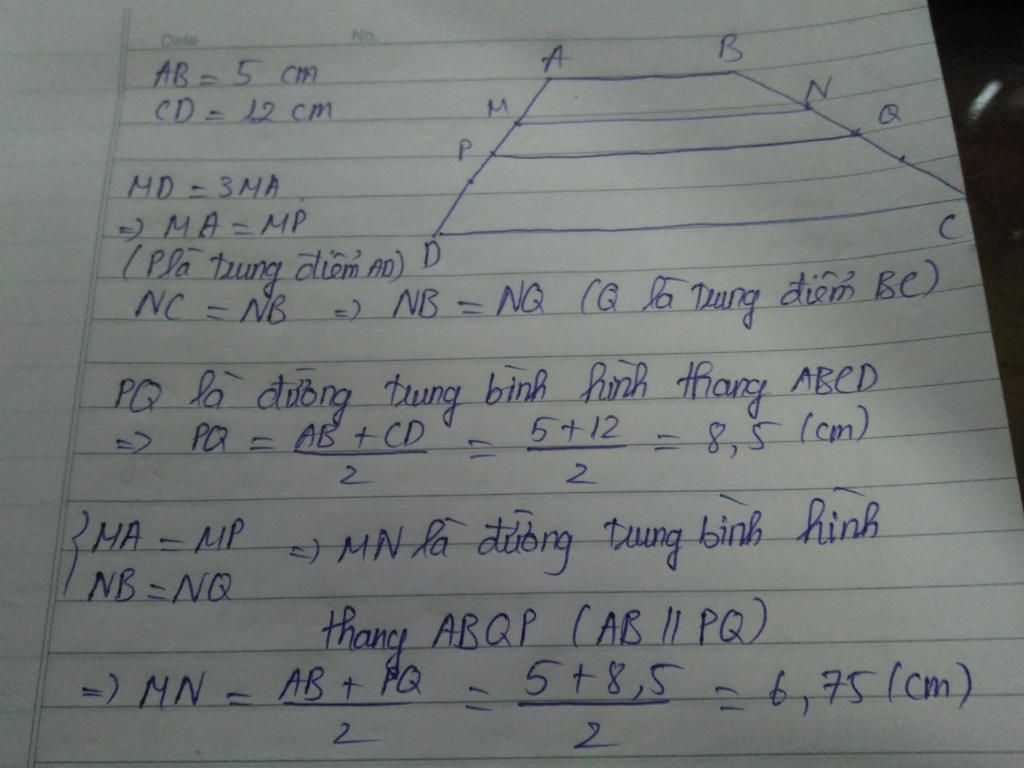 Date No.
AB = 5 cm
CD = 12 cm
A B
M N
P Q
D C
MD = 3MA
=> MA = MP
(P là trung điểm AD)
NC = NB => NB = NQ (Q là trung điểm BC)
PQ là đường trung bình hình thang ABCD
=> PQ = (AB + CD)/2 = (5+12)/2 = 8,5 (cm)
{ MA = MP => MN là đường trung bình hình
NB = NQ
thang ABQP (AB // PQ)
=> MN = (AB + PQ)/2 = (5+8,5)/2 = 6,75 (cm)